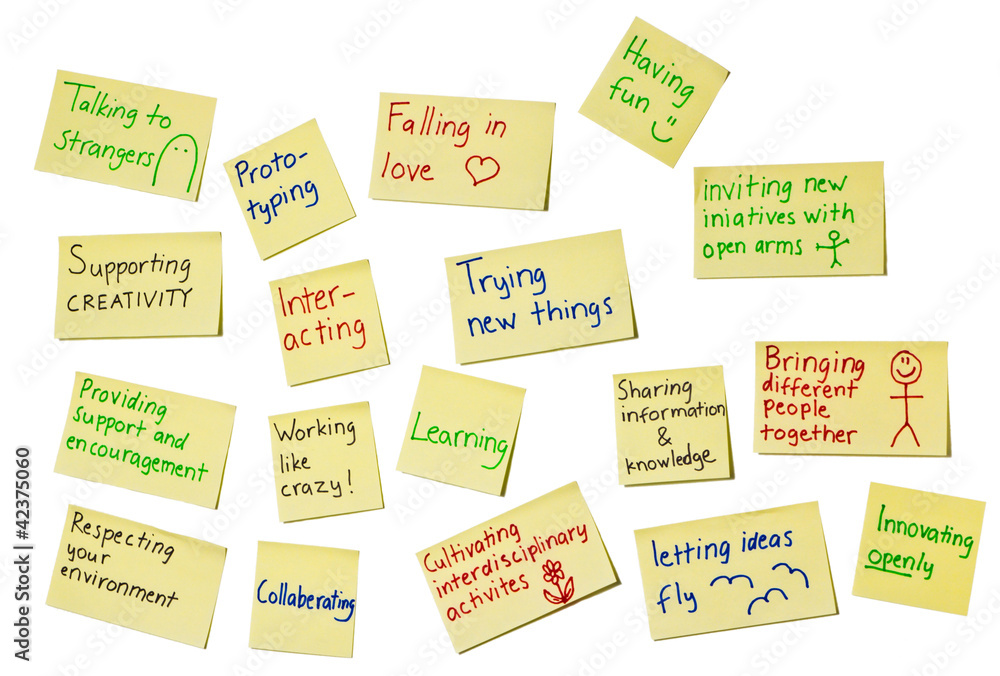 Talking to
strangers
Proto-
typing
Falling in
love
Having
fun
inviting new
iniatives with
open arms
Supporting
CREATIVITY
Inter-
acting
Trying
new things
Bringing
different
people
together
Providing
support and
encouragement
Working
like
crazy!
Learning
Sharing
information
&
knowledge
Respecting
your
environment
Collaberating
Cultivating
interdisciplinary
activites
letting ideas
fly
Innovating
openly
Adobe Stock | #42375060
Adobe Stock